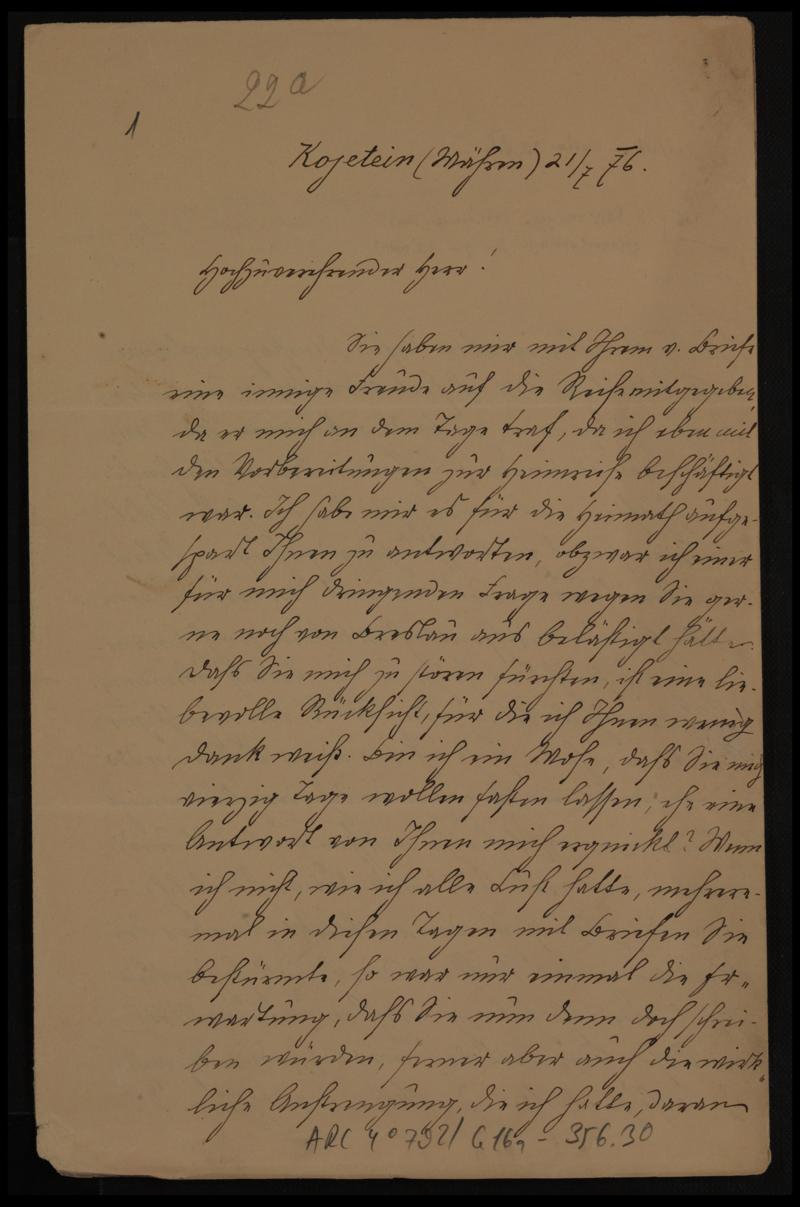 22a
1
Kojetein (Mähren) 21/7 76.
Hochzuverehrender Herr!
Sie haben mir mit Ihrem v. Briefe
eine innige Freude auf die Reise mitgegeben,
da er mich an dem Tage traf, da ich eben mit
den Vorbereitungen zur Heimreise beschäftigt
war. Ich habe mir es für die Heimath aufge-
spart Ihnen zu antworten, obzwar ich einer
für mich dringenden Frage wegen Sie ger-
ne noch von Breslau aus belästigt hätte.
Daß Sie mich zu stören fürchten, ist eine lie-
bevolle Rücksicht, für die ich Ihnen wenig
Dank weiß. Bin ich ein Mose, daß Sie mich
vierzig Tage wollen fasten lassen, ehe eine
Antwort von Ihnen mich erquickt? Wenn
ich nicht, wie ich alle Lust hatte, mehrere-
mal in diesen Tagen mit Briefen Sie
bestürmte, so war nur einmal die Er-
wartung, daß Sie nun denn doch schrei-
ben würden, ferner aber auch die wirk-
liche Anstrengung, die ich hatte, daran
ARC 4° 792/ G16a - 356.30